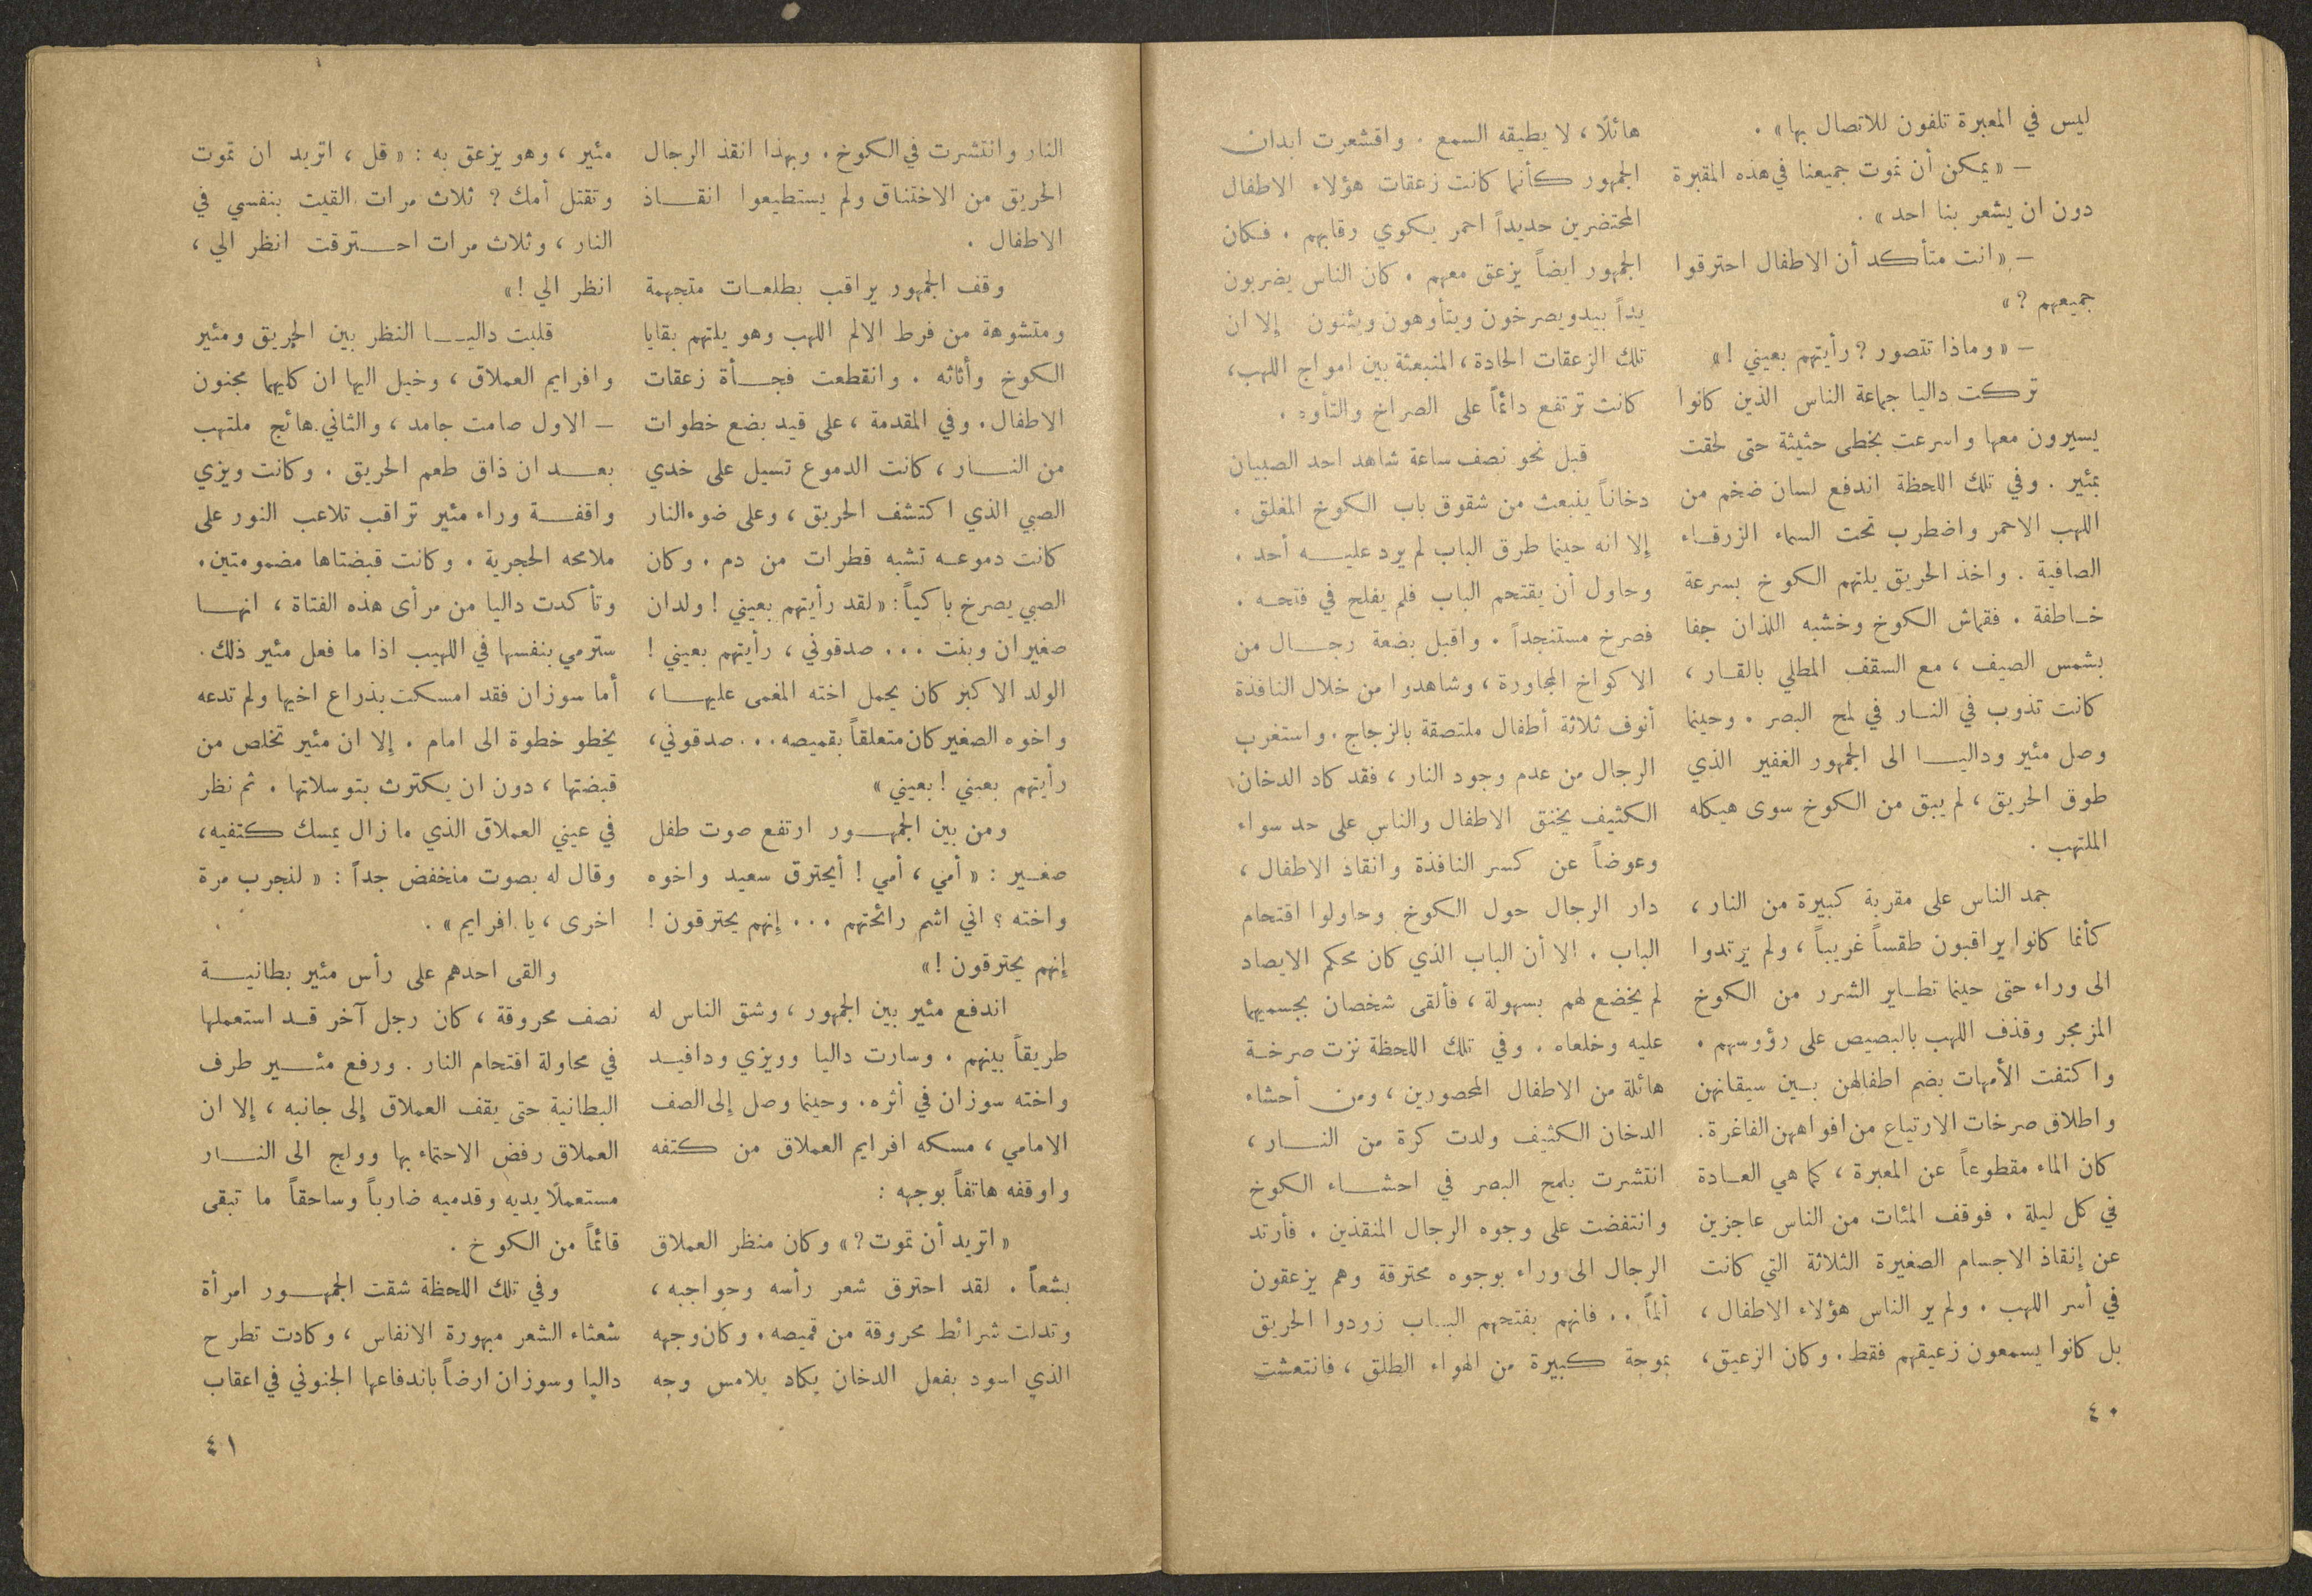 ليس في المعبرة تلفون للاتصال بها» .
– « يمكن أن نموت جميعنا في هذه المقبرة
دون ان يشعر بنا احد» .
– « انت متأكد أن الاطفال احترقوا
جميعهم ? »
– « وماذا تتصور ? رأيتهم بعيني ! »
تركت داليا جماعة الناس الذين كانوا
يسيرون معها واسرعت بخطى حثيثة حتى لحقت
بمئير . وفي تلك اللحظة اندفع لسان ضخم من
اللهب الاحمر واضطرب تحت السماء الزرقاء
الصافية . واخذ الحريق يلتهم الكوخ بسرعة
خاطفة . فقماش الكوخ وخشبه اللذان جفا
بشمس الصيف ، مع السقف المطلي بالقار ،
كانت تذوب في النار في لمح البصر . وحينما
وصل مئير وداليا الى الجمهور الغفير الذي
طوق الحريق ، لم يبق من الكوخ سوى هيكله
الملتهب .
جمد الناس على مقربة كبيرة من النار ،
كأنما كانوا يراقبون طقساً غريباً ، ولم يرتدوا
الى وراء حتى حينما تطاير الشرر من الكوخ
المزمجر وقذف اللهب بالبصيص على رؤوسهم .
واكتفت الأمهات بضم اطفالهن بين سيقانهن
واطلاق صرخات الارتياع من افواههن الفاغرة.
كان الماء مقطوعاً عن المعبرة ، كما هي العادة
في كل ليلة . فوقف المئات من الناس عاجزين
عن إنقاذ الاجسام الصغيرة الثلاثة التي كانت
في أسر اللهب . ولم ير الناس هؤلاء الاطفال ،
بل كانوا يسمعون زعيقهم فقط . وكان الزعيق ،
هائلًا ، لا يطيقه السمع . واقشعرت ابدان
الجمهور كأنما كانت زعقات هؤلاء الاطفال
المحتضرين حديداً احمر يكوي رقابهم . فكان
الجمهور ايضاً يزعق معهم . كان الناس يضربون
يداً بيد ويصرخون ويتأوهون ويئنون إلا ان
تلك الزعقات الحادة ، المنبعثة بين امواج اللهب ،
كانت ترتفع دائماً على الصراخ والتأوه .
قبل نحو نصف ساعة شاهد احد الصبيان
دخاناً ينبعث من شقوق باب الكوخ المغلق .
إلا انه حينما طرق الباب لم يرد عليه أحد .
وحاول أن يقتحم الباب فلم يفلح في فتحه .
فصرخ مستنجداً . واقبل بضعة رجال من
الاكواخ المجاورة ، وشاهدوا من خلال النافذة
أنوف ثلاثة أطفال ملتصقة بالزجاج . واستغرب
الرجال من عدم وجود النار ، فقد كاد الدخان
الكثيف يخنق الاطفال والناس على حد سواء
وعوضاً عن كسر النافذة وانقاذ الاطفال ،
دار الرجال حول الكوخ وحاولوا اقتحام
الباب . الا أن الباب الذي كان محكم الايصاد
لم يخضع لهم بسهولة ، فألقى شخصان بجسميهما
عليه وخلعاه . وفي تلك اللحظة نزت صرخة
هائلة من الاطفال المحصورين ، ومن أحشاء
الدخان الكثيف ولدت كرة من النار ،
انتشرت بلمح البصر في احشاء الكوخ
وانتفضت على وجوه الرجال المنقذين . فأرتد
الرجال الى وراء بوجوه محترقة وهم يزعقون
ألماً .. فانهم بفتحهم الباب زودوا الحريق
بموجة كبيرة من الهواء الطلق ، فانتعشت
٤٠
النار وانتشرت في الكوخ . وبهذا انقذ الرجال
الحريق من الاختناق ولم يستطيعوا انقاذ
الاطفال .
وقف الجمهور يراقب بطلعات متجهمة
ومتشوهة من فرط الالم اللهب وهو يلتهم بقايا
الكوخ وأثاثه . وانقطعت فجأة زعقات
الاطفال . وفي المقدمة ، على قيد بضع خطوات
من النار ، كانت الدموع تسيل على خدي
الصبي الذي اكتشف الحريق ، وعلى ضوء النار
كانت دموعه تشبه قطرات من دم . وكان
الصبي يصرخ باكياً : « لقد رأيتهم بعيني ! ولدان
صغيران وبنت ... صدقوني ، رأيتهم بعيني !
الولد الاكبر كان يحمل اخته المغمى عليها ،
واخوه الصغير كان متعلقاً بقميصه ... صدقوني ،
رأيتهم بعيني ! بعيني »
ومن بين الجمهور ارتفع صوت طفل
صغير : « أمي ، أمي ! أيحترق سعيد واخوه
واخته ؟ اني اشم رائحتهم ... إنهم يحترقون !
إنهم يحترقون ! »
اندفع مئير بين الجمهور ، وشق الناس له
طريقاً بينهم . وسارت داليا وويزي ودافيد
واخته سوزان في أثره . وحينما وصل إلى الصف
الامامي ، مسكه افرايم العملاق من كتفه
واوقفه هاتفاً بوجهه :
« اتريد أن تموت ? » وكان منظر العملاق
بشعاً . لقد احترق شعر رأسه وحواجبه ،
وتدلت شرائط محروقة من قميصه . وكان وجهه
الذي اسود بفعل الدخان يكاد يلامس وجه
مئير ، وهو يزعق به : « قل ، اتريد ان تموت
وتقتل أمك ? ثلاث مرات القيت بنفسي في
النار ، وثلاث مرات احترقت انظر الي ،
انظر الي ! »
قلبت داليا النظر بين الحريق ومئير
وافرايم العملاق ، وخيل اليها ان كليهما مجنون
– الاول صامت جامد ، والثاني هائج ملتهب
بعد ان ذاق طعم الحريق . وكانت ويزي
واقفة وراء مئير تراقب تلاعب النور على
ملامحه الحجرية . وكانت قبضتاها مضمومتين .
وتأكدت داليا من مرأى هذه الفتاة ، انها
سترمي بنفسها في اللهيب اذا ما فعل مئير ذلك .
أما سوزان فقد امسكت بذراع اخيها ولم تدعه
يخطو خطوة الى امام . إلا ان مئير تخلص من
قبضتها ، دون ان يكترث بتوسلاتها . ثم نظر
في عيني العملاق الذي ما زال يمسك كتفيه ،
وقال له بصوت منخفض جداً : « لنجرب مرة
اخرى ، يا افرايم » .
والقى احدهم على رأس مئير بطانية
نصف محروقة ، كان رجل آخر قد استعملها
في محاولة اقتحام النار . ورفع مئير طرف
البطانية حتى يقف العملاق إلى جانبه ، إلا ان
العملاق رفض الاحتماء بها وولج الى النار
مستعملًا يديه وقدميه ضارباً وساحقاً ما تبقى
قائماً من الكوخ .
وفي تلك اللحظة شقت الجمهور امرأة
شعثاء الشعر مبهورة الانفاس ، وكادت تطرح
داليا وسوزان ارضاً باندفاعها الجنوني في اعقاب
٤١